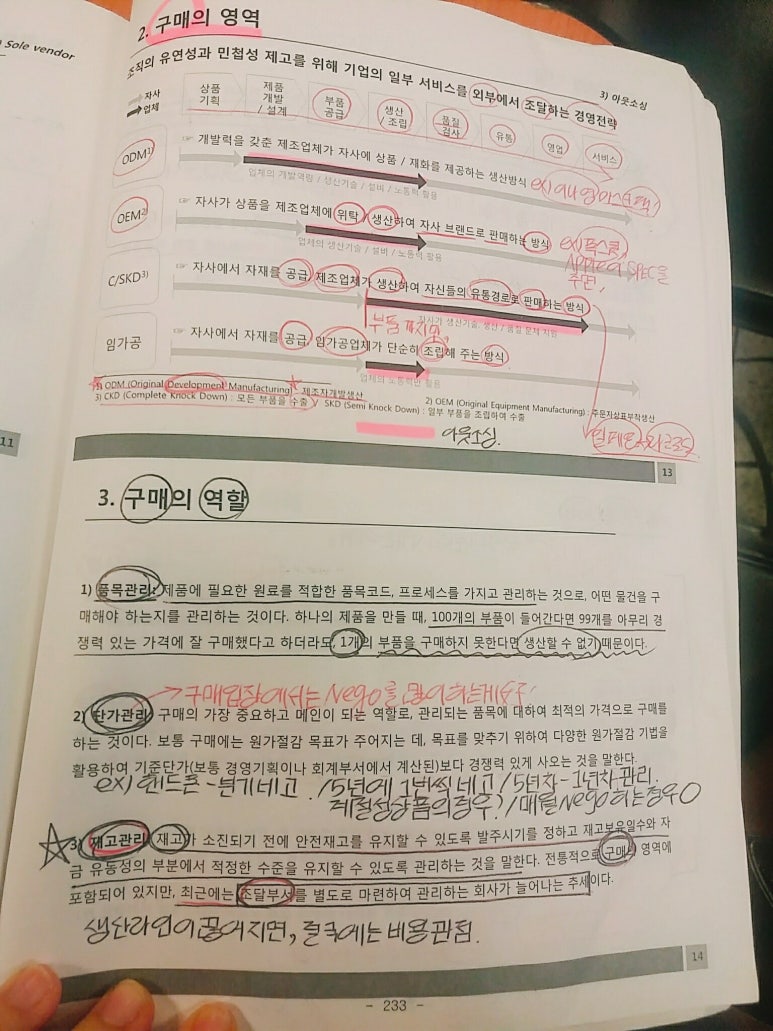 Sole vendor
2. 구매의 영역
조직의 유연성과 민첩성 제고를 위해 기업의 일부 서비스를 외부에서 조달하는 경영전략
3) 아웃소싱
자사
업체
상품 기획
제품 개발 / 설계
부품 공급
생산 / 조립
품질 검사
유통
영업
서비스
ODM1)
☞ 개발력을 갖춘 제조업체가 자사에 상품 / 재화를 제공하는 생산방식
업체의 개발역량 / 생산기술 / 설비 / 노동력 활용
OEM2)
☞ 자사가 상품을 제조업체에 위탁 / 생산하여 자사 브랜드로 판매하는 방식
ex) 폭스콘,
Apple이 SPEC을
주면,
업체의 생산기술 / 설비 / 노동력 활용
C/SKD3)
☞ 자사에서 자재를 공급, 제조업체가 생산하여 자신들의 유통경로로 판매하는 방식
자사가 생산기술, 생산 / 품질 문제 지원
부품까지만
임가공
☞ 자사에서 자재를 공급, 임가공업체가 단순히 조립해 주는 방식
업체의 노동력만 활용
1) ODM (Original Development Manufacturing) : 제조자개발생산
2) OEM (Original Equipment Manufacturing) : 주문자상표부착생산
3) CKD (Complete Knock Down) : 모든 부품을 수출 / SKD (Semi Knock Down) : 일부 부품을 조립하여 수출
아웃소싱.
11
13
3. 구매의 역할
1) 품목관리: 제품에 필요한 원료를 적합한 품목코드, 프로세스를 가지고 관리하는 것으로, 어떤 물건을 구
매해야 하는지를 관리하는 것이다. 하나의 제품을 만들 때, 100개의 부품이 들어간다면 99개를 아무리 경
쟁력 있는 가격에 잘 구매했다고 하더라도, 1개의 부품을 구매하지 못한다면 생산할 수 없기 때문이다.
→ 구매입장에서는 Nego를 많이 하는게 좋음
2) 단가관리: 구매의 가장 중요하고 메인이 되는 역할로, 관리되는 품목에 대하여 최적의 가격으로 구매를
하는 것이다. 보통 구매에는 원가절감 목표가 주어지는 데, 목표를 맞추기 위하여 다양한 원가절감 기법을
활용하여 기준단가(보통 경영기획이나 회계부서에서 계산된)보다 경쟁력 있게 사오는 것을 말한다.
ex) 핸드폰 - 분기네고. / 5년에 1번씩 네고 / 5년차 - 1년차 관리.
계절성상품의 경우? / 매월 Nego 하는 경우 O
☆ 3) 재고관리: 재고가 소진되기 전에 안전재고를 유지할 수 있도록 발주시기를 정하고 재고보유일수와 자
금 유동성의 부분에서 적정한 수준을 유지할 수 있도록 관리하는 것을 말한다. 전통적으로 구매 영역에
포함되어 있지만, 최근에는 조달부서를 별도로 마련하여 관리하는 회사가 늘어나는 추세이다.
생산라인이 끊어지면, 결국에는 비용관점.
14
- 233 -